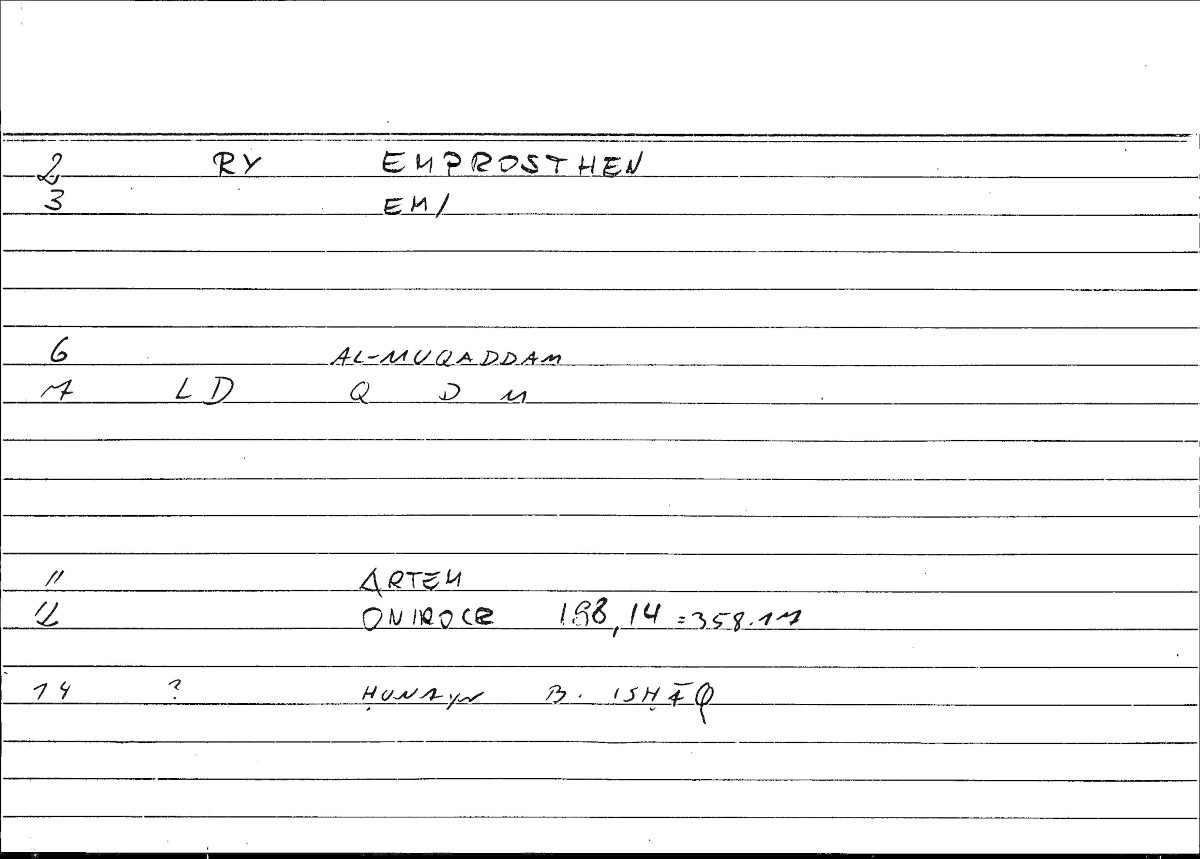 2 RY EMPROSTHEN
3 EM/
6 AL-MUQADDAM
7 LD Q D M
11 ARTEM
12 ONIROCR 198,14 =358.17
14 ? ḤUNAYN B. ISḤĀQ